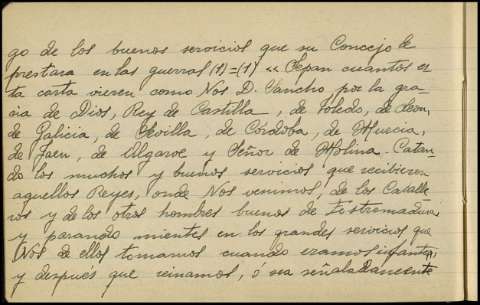 go de los buenos servicios que su Concejo le
prestara en las guerras (1)=(1) « Sepan cuantos es
ta carta vieren como Nos D. Sancho, por la gra-
cia de Dios, Rey de Castilla, de Toledo, de Leon,
de Galicia, de Sevilla, de Córdoba, de Murcia,
de Jaen, de Algarve y Señor de Molina. Catan
do los muchos y buenos servicios que recibieron
aquellos Reyes, onde Nos venimos, de los Caballe
ros y de los otros hombres buenos de Estremadura
y parando mientes en los grandes servicios que
Nos de ellos tomamos cuando eramos infante,
y después que reinamos, ó sea señaladamente